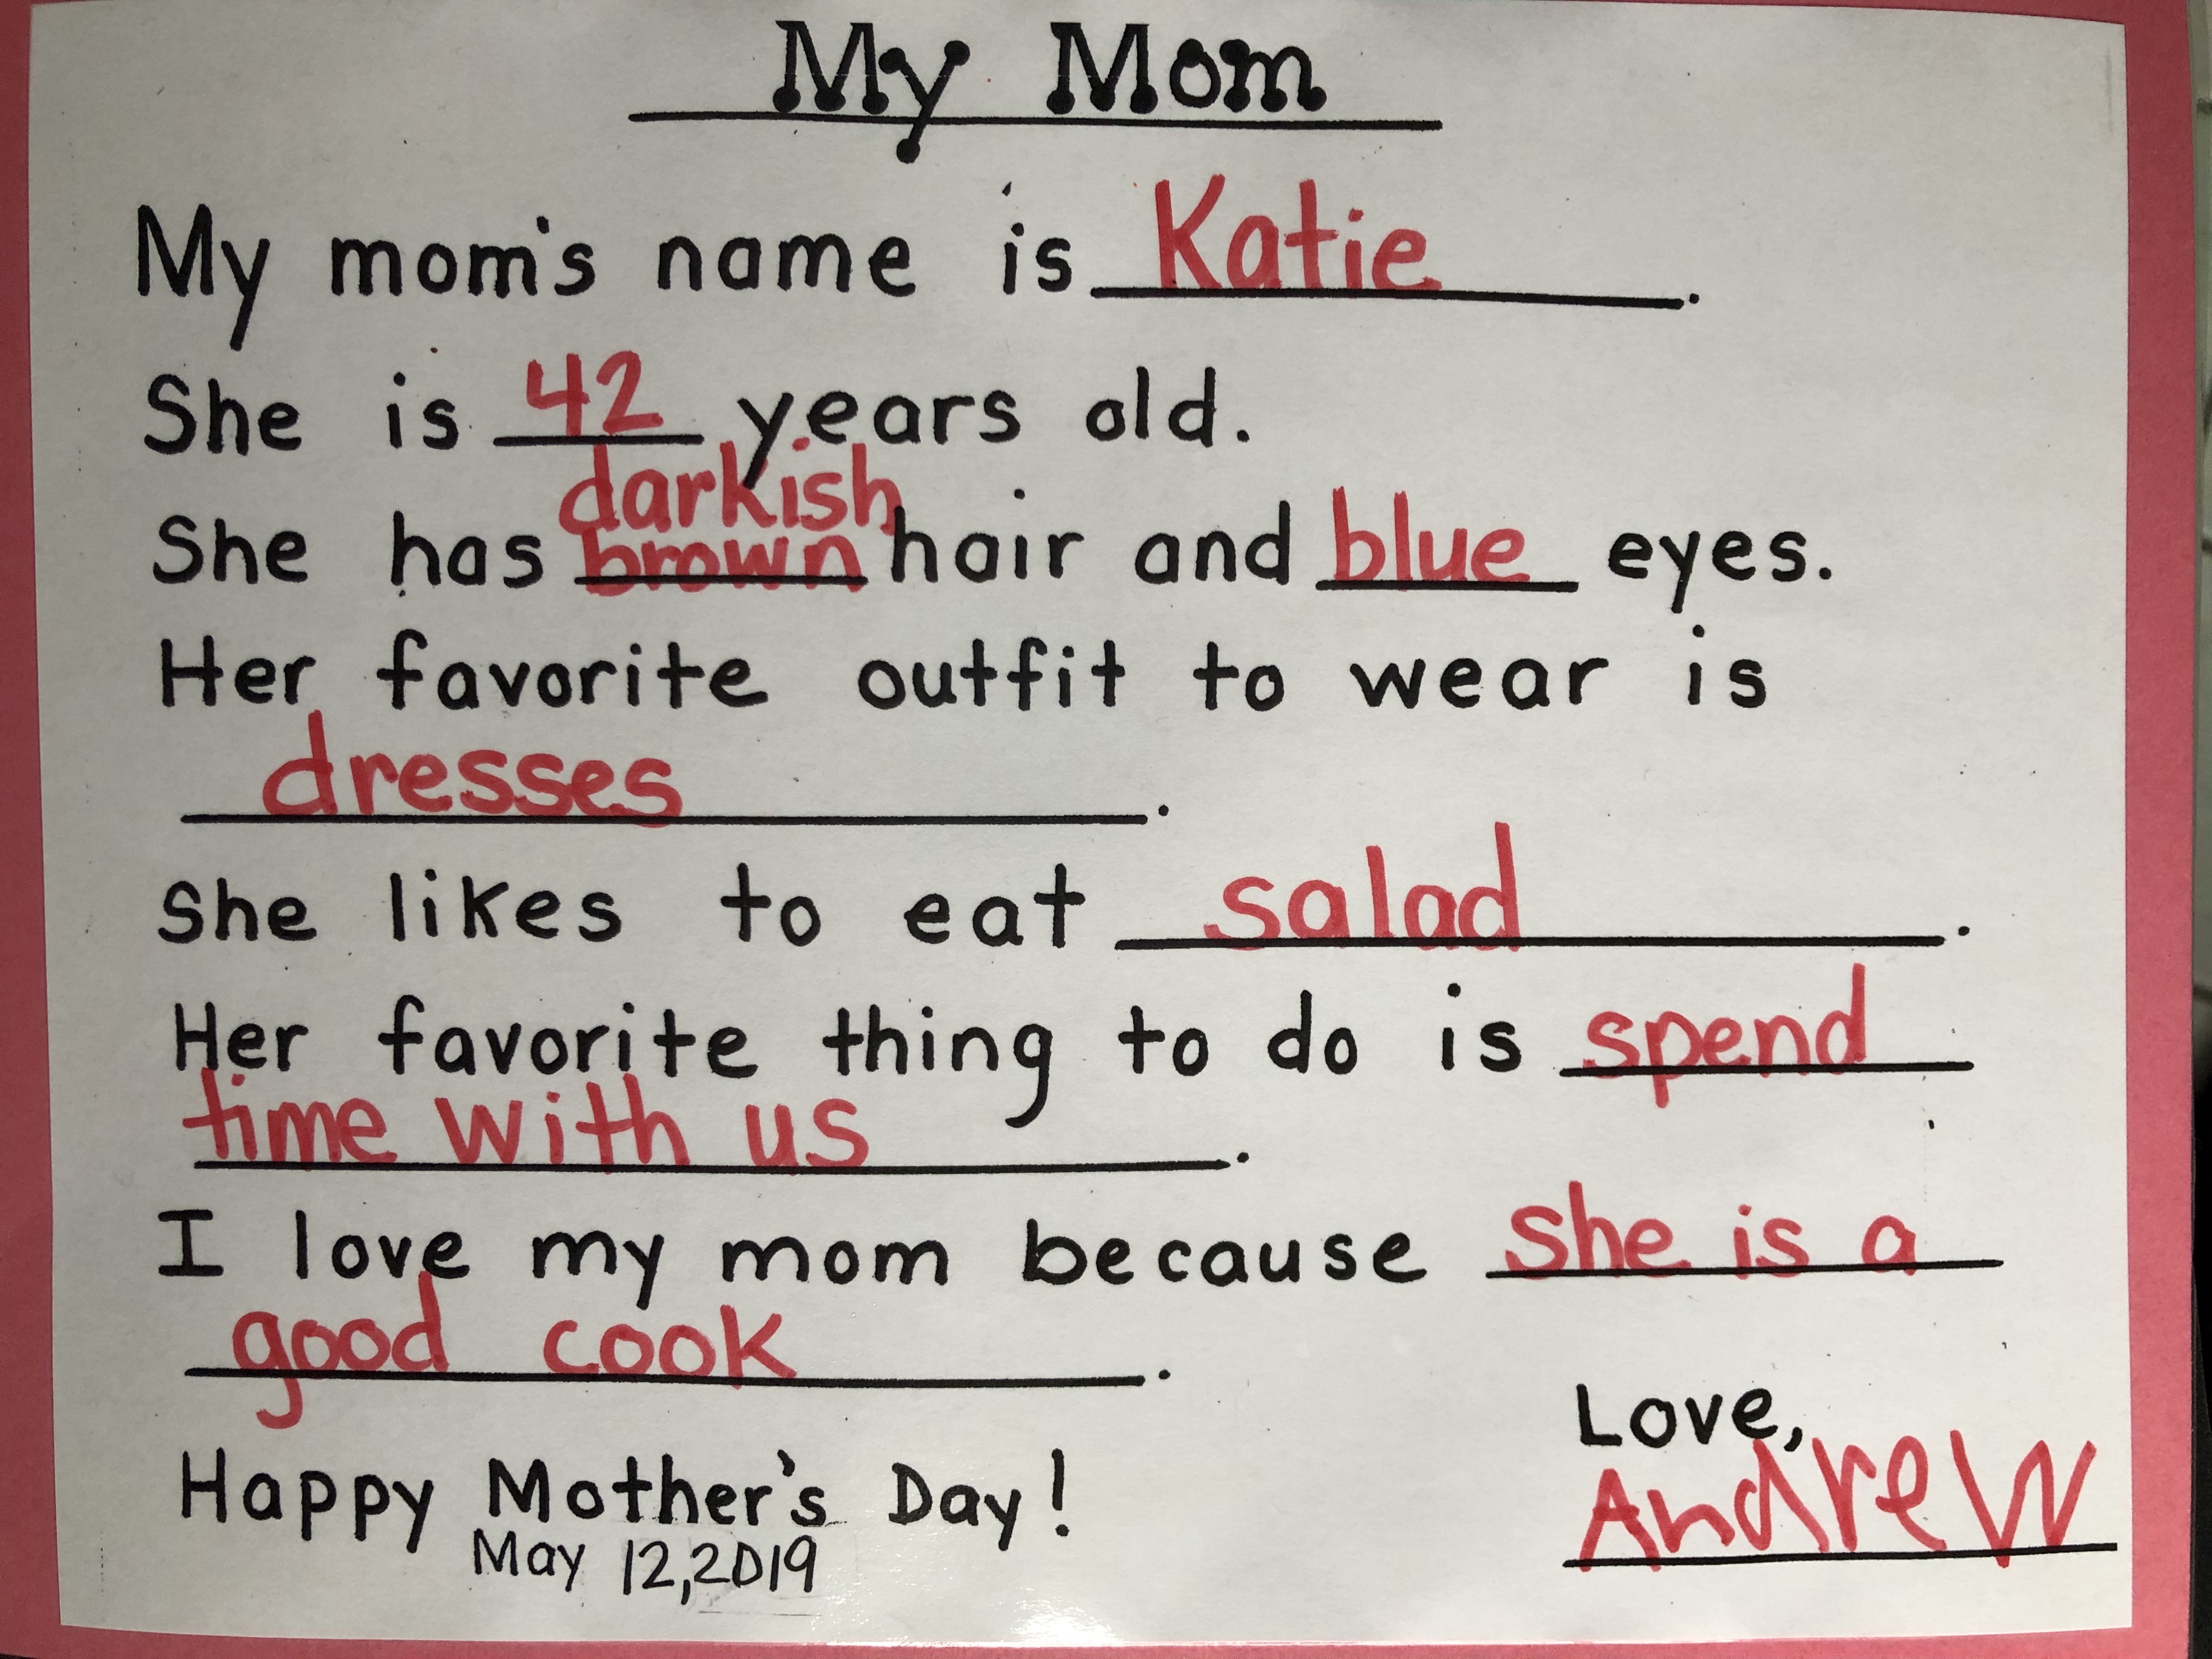 My Mom
My mom's name is Katie.
She is 42 years old.
darkish
She has brown hair and blue eyes.
Her favorite outfit to wear is
dresses.
She likes to eat salad.
Her favorite thing to do is spend
time with us.
I love my mom because she is a
good cook.
Love,
Happy Mother's Day! Andrew
May 12, 2019